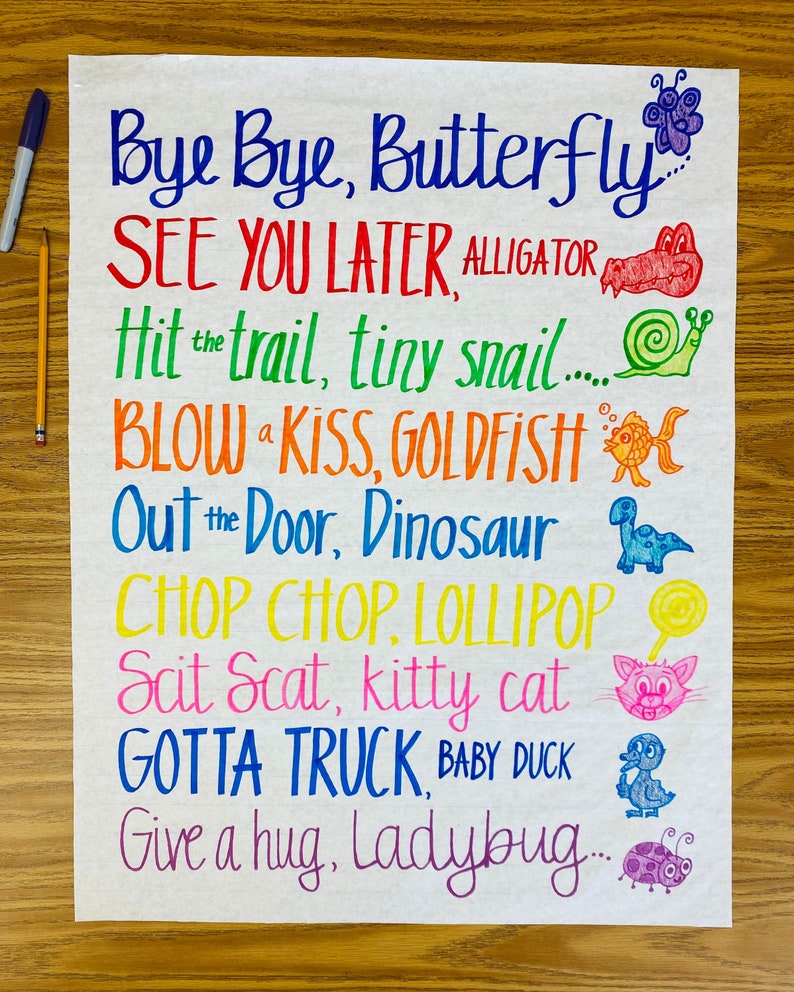 Bye Bye, Butterfly....
SEE YOU LATER, ALLIGATOR
Hit the trail, tiny snail.....
BLOW a KiSS, GOLDFiSH
Out the Door, Dinosaur
CHOP CHOP, LOLLIPOP
Scit Scat, kitty cat
GOTTA TRUCK, BABY DUCK
Give a hug, Ladybug...